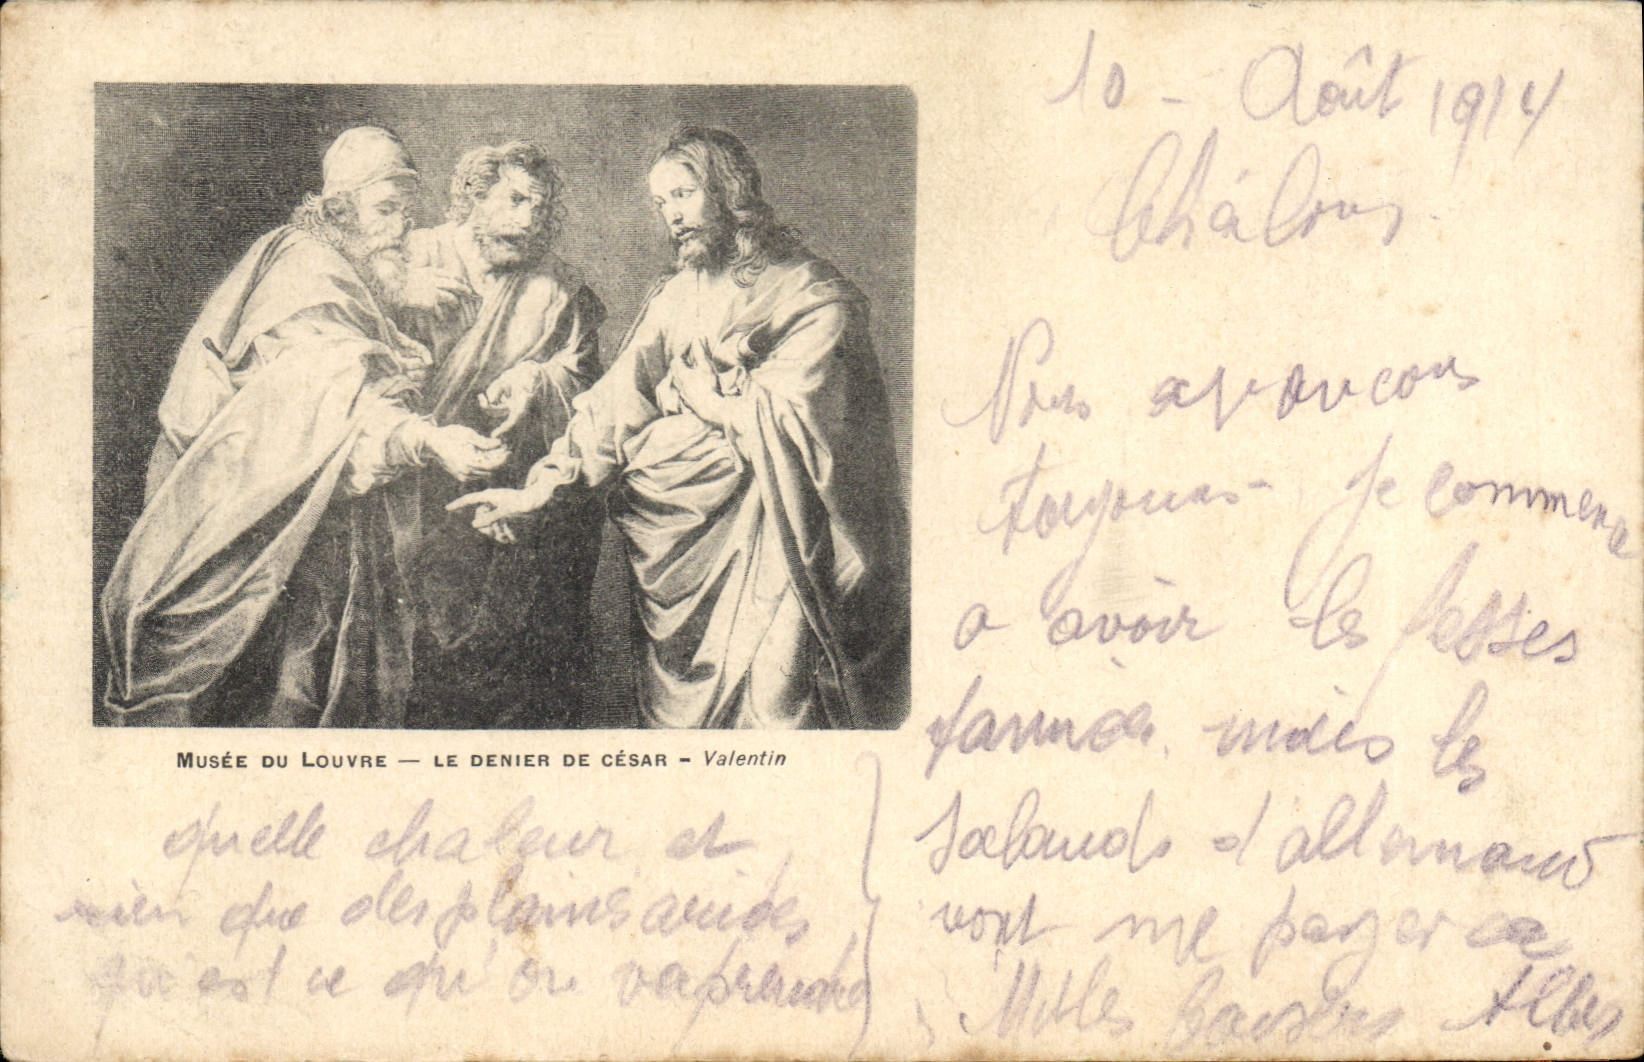 10 - Août 1914
Châlons
Nous avancons
toujours - Je commence
a avoir les fesses
mais les
salauds d'allemand
vont me payer ca
Milles baisers
MUSÉE DU LOUVRE — LE DENIER DE CÉSAR - Valentin
quelle chaleur et
rien que des plaines arides
qu'est ce qu'on va prendre